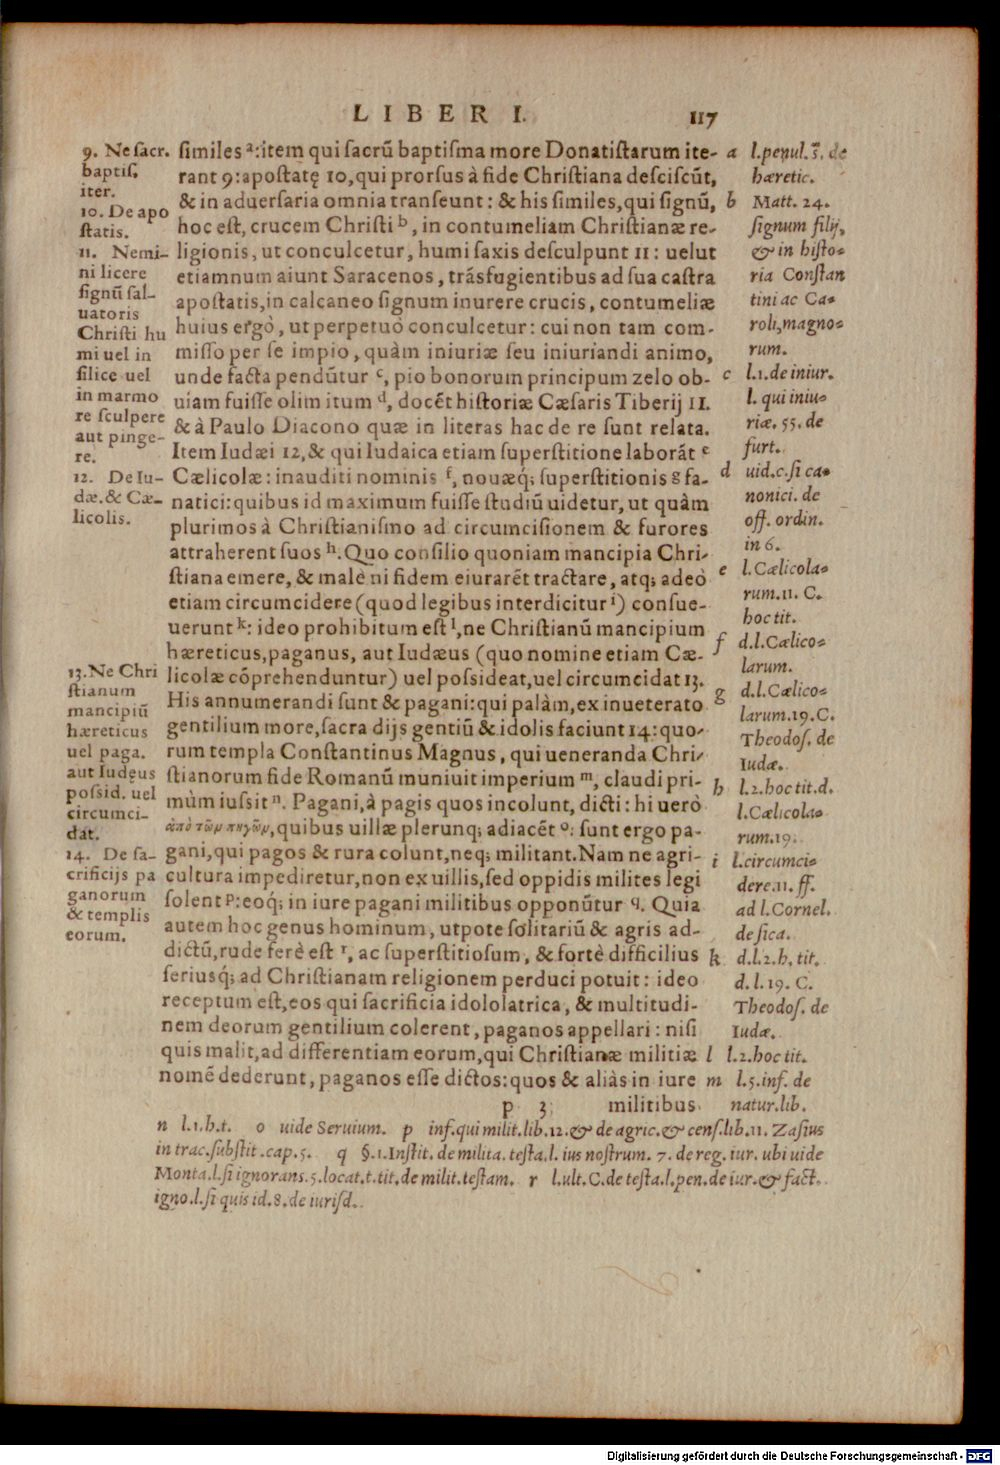 LIBER I. 117
9. Ne sacr.
baptis,
iter.
10. De apo
statis.
11. Nemi-
ni licere
signũ sal-
uatoris
Christi hu
mi uel in
silice uel
in marmo
re sculpere
aut pinge-
re.
12. De Iu-
dæ. & Cæ-
licolis.
13. Ne Chri
stianum
mancipiũ
hæreticus
uel paga.
aut Iudęus
possid. uel
circumci-
dat.
14. De sa-
crificijs pa
ganorum
& templis
eorum.
similes ᵃ: item qui sacrũ baptisma more Donatistarum ite-
rant 9: apostatę 10, qui prorsus à fide Christiana desciscũt,
& in aduersaria omnia transeunt: & his similes, qui signũ,
hoc est, crucem Christi ᵇ, in contumeliam Christianæ re-
ligionis, ut conculcetur, humi saxis desculpunt 11: uelut
etiamnum aiunt Saracenos, trásfugientibus ad sua castra
apostatis, in calcaneo signum inurere crucis, contumeliæ
huius ergò, ut perpetuò conculcetur: cui non tam com-
misso per se impio, quàm iniuriæ seu iniuriandi animo,
unde facta pendũtur ᶜ, pio bonorum principum zelo ob-
uiam fuisse olim itum ᵈ, docẽt historiæ Cæsaris Tiberij II.
& à Paulo Diacono quæ in literas hac de re sunt relata.
Item Iudæi 12, & qui Iudaica etiam superstitione laborãt ᵉ
Cælicolæ: inauditi nominis ᶠ, nouæq́; superstitionis ᵍ fa-
natici: quibus id maximum fuisse studiũ uidetur, ut quàm
plurimos à Christianismo ad circumcisionem & furores
attraherent suos ʰ. Quo consilio quoniam mancipia Chri-
stiana emere, & malè ni fidem eiurarẽt tractare, atq; adeò
etiam circumcidere (quod legibus interdicitur ⁱ) consue-
uerunt ᵏ: ideo prohibitum est ˡ, ne Christianũ mancipium
hæreticus, paganus, aut Iudæus (quo nomine etiam Cæ-
licolæ cõprehenduntur) uel possideat, uel circumcidat 13.
His annumerandi sunt & pagani: qui palàm, ex inueterato
gentilium more, sacra dijs gentiũ & idolis faciunt 14: quo-
rum templa Constantinus Magnus, qui ueneranda Chri-
stianorum fide Romanũ muniuit imperium ᵐ, claudi pri-
mùm iussit ⁿ. Pagani, à pagis quos incolunt, dicti: hi uerò
ἀπὸ τῶμ πηγῶμ, quibus uillæ plerunq; adiacẽt ᵒ: sunt ergo pa-
gani, qui pagos & rura colunt, neq; militant. Nam ne agri-
cultura impediretur, non ex uillis, sed oppidis milites legi
solent ᵖ: eoq́; in iure pagani militibus opponũtur q. Quia
autem hoc genus hominum, utpote solitariũ & agris ad-
dictũ, rude ferè est ʳ, ac superstitiosum, & fortè difficilius
seriusq́; ad Christianam religionem perduci potuit: ideo
receptum est, eos qui sacrificia idololatrica, & multitudi-
nem deorum gentilium colerent, paganos appellari: nisi
quis malit, ad differentiam eorum, qui Christianæ militiæ
nomẽ dederunt, paganos esse dictos: quos & aliàs in iure
p 3 militibus
a l. penul. §. de
hæretic.
b Matt. 24.
signum filij,
& in histo-
ria Constan
tini ac Ca-
roli, magno-
rum.
c l.1. de iniur.
l. qui iniu-
riæ. 55. de
furt.
d uid. c. si ca-
nonici. de
off. ordin.
in 6.
e l. Cælicola-
rum. 11. C.
hoc tit.
f d.l. Cælico-
larum.
g d.l. Cælico-
larum. 19. C.
Theodos. de
Iudæ.
h l.2. hoc tit. d.
l. Cælicola-
rum. 19.
i l. circumci-
dere. 11. ff.
ad l. Cornel.
de sica.
k d.l.2. h. tit.
d.l.19. C.
Theodos. de
Iudæ.
l l.2. hoc tit.
m l.5. inf. de
natur. lib.
n l.1. h.t. o uide Seruium. p inf. qui milit. lib. 12. & de agric. & cens. lib. 11. Zasius
in trac. substit. cap. 5. q §.1. Instit. de milita. testa. l. ius nostrum. 7. de reg. iur. ubi uide
Monta. l. si ignorans. 5. locat. t. tit. de milit. testam. r l. ult. C. de testa. l. pen. de iur. & fact.
igno. l. si quis id. 8. de iurisd.
Digitalisierung gefördert durch die Deutsche Forschungsgemeinschaft - DFG